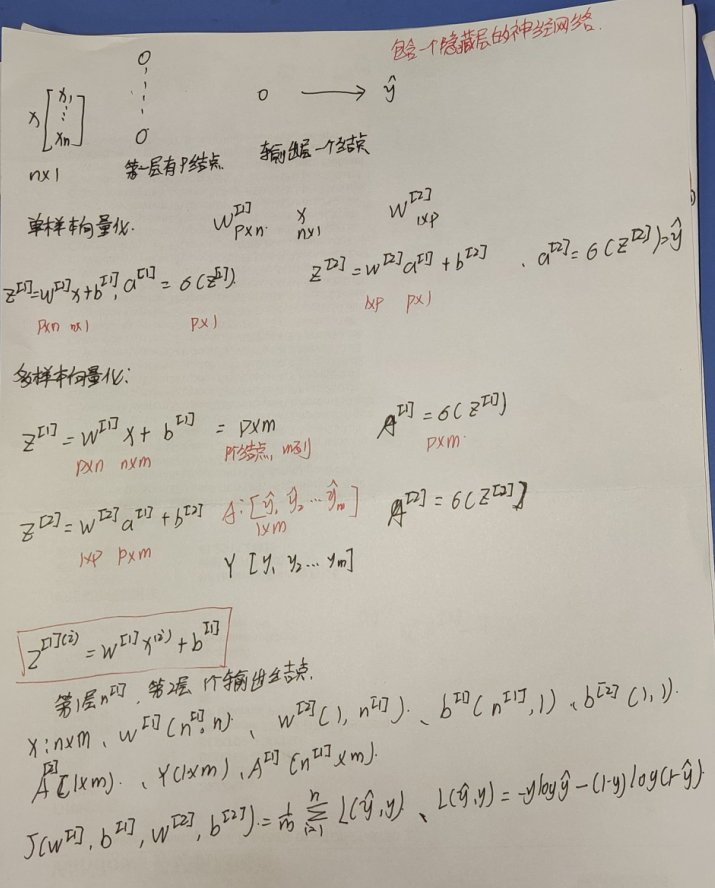 包含一个隐藏层的神经网络.
x [x₁ ⋮ xₙ] O ⋮ O O → ŷ
n×1 第一层有P结点 输出层一个结点
单样本向量化. W^[1] x W^[2]
P×n n×1 1×P
z^[1]=w^[1]x+b^[1], a^[1]=σ(z^[1]). z^[2]=w^[2]a^[1]+b^[2] 、a^[2]=σ(z^[2])=ŷ
P×n n×1 P×1 1×P P×1
多样本向量化:
z^[1]=w^[1]x+b^[1] = P×m A^[1]=σ(z^[1])
P×n n×m P个结点, m列 P×m.
z^[2]=w^[2]a^[1]+b^[2] A:[ŷ₁ ŷ₂ … ŷₘ] A^[2]=σ(z^[2])
1×P P×m 1×m
Y [y₁ y₂ … yₘ]
z^[1](i)=w^[1]x^(i)+b^[1]
第1层n^[1], 第2层 1个输出结点.
x:n×m、w^[1](n^[1], n)、w^[2](1, n^[1])、b^[1](n^[1],1)、b^[2](1,1).
A^[2](1×m)、Y(1×m)、A^[1](n^[1]×m).
J(w^[1],b^[1],w^[2],b^[2])=1/m Σ_{i=1}^{n} L(ŷ,y)、L(ŷ,y)=-ylogŷ-(1-y)log(1-ŷ)